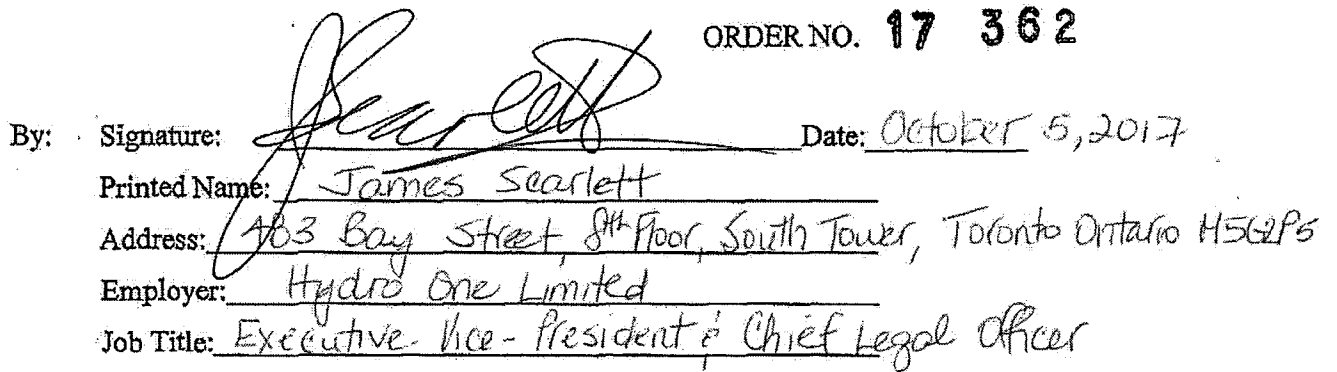 ORDER NO. 17 362
By: Signature: J Scarlett Date: October 5, 2017
Printed Name: James Scarlett
Address: 483 Bay Street, 8th Floor, South Tower, Toronto Ontario M5G2P5
Employer: Hydro One Limited
Job Title: Executive Vice-President & Chief Legal Officer